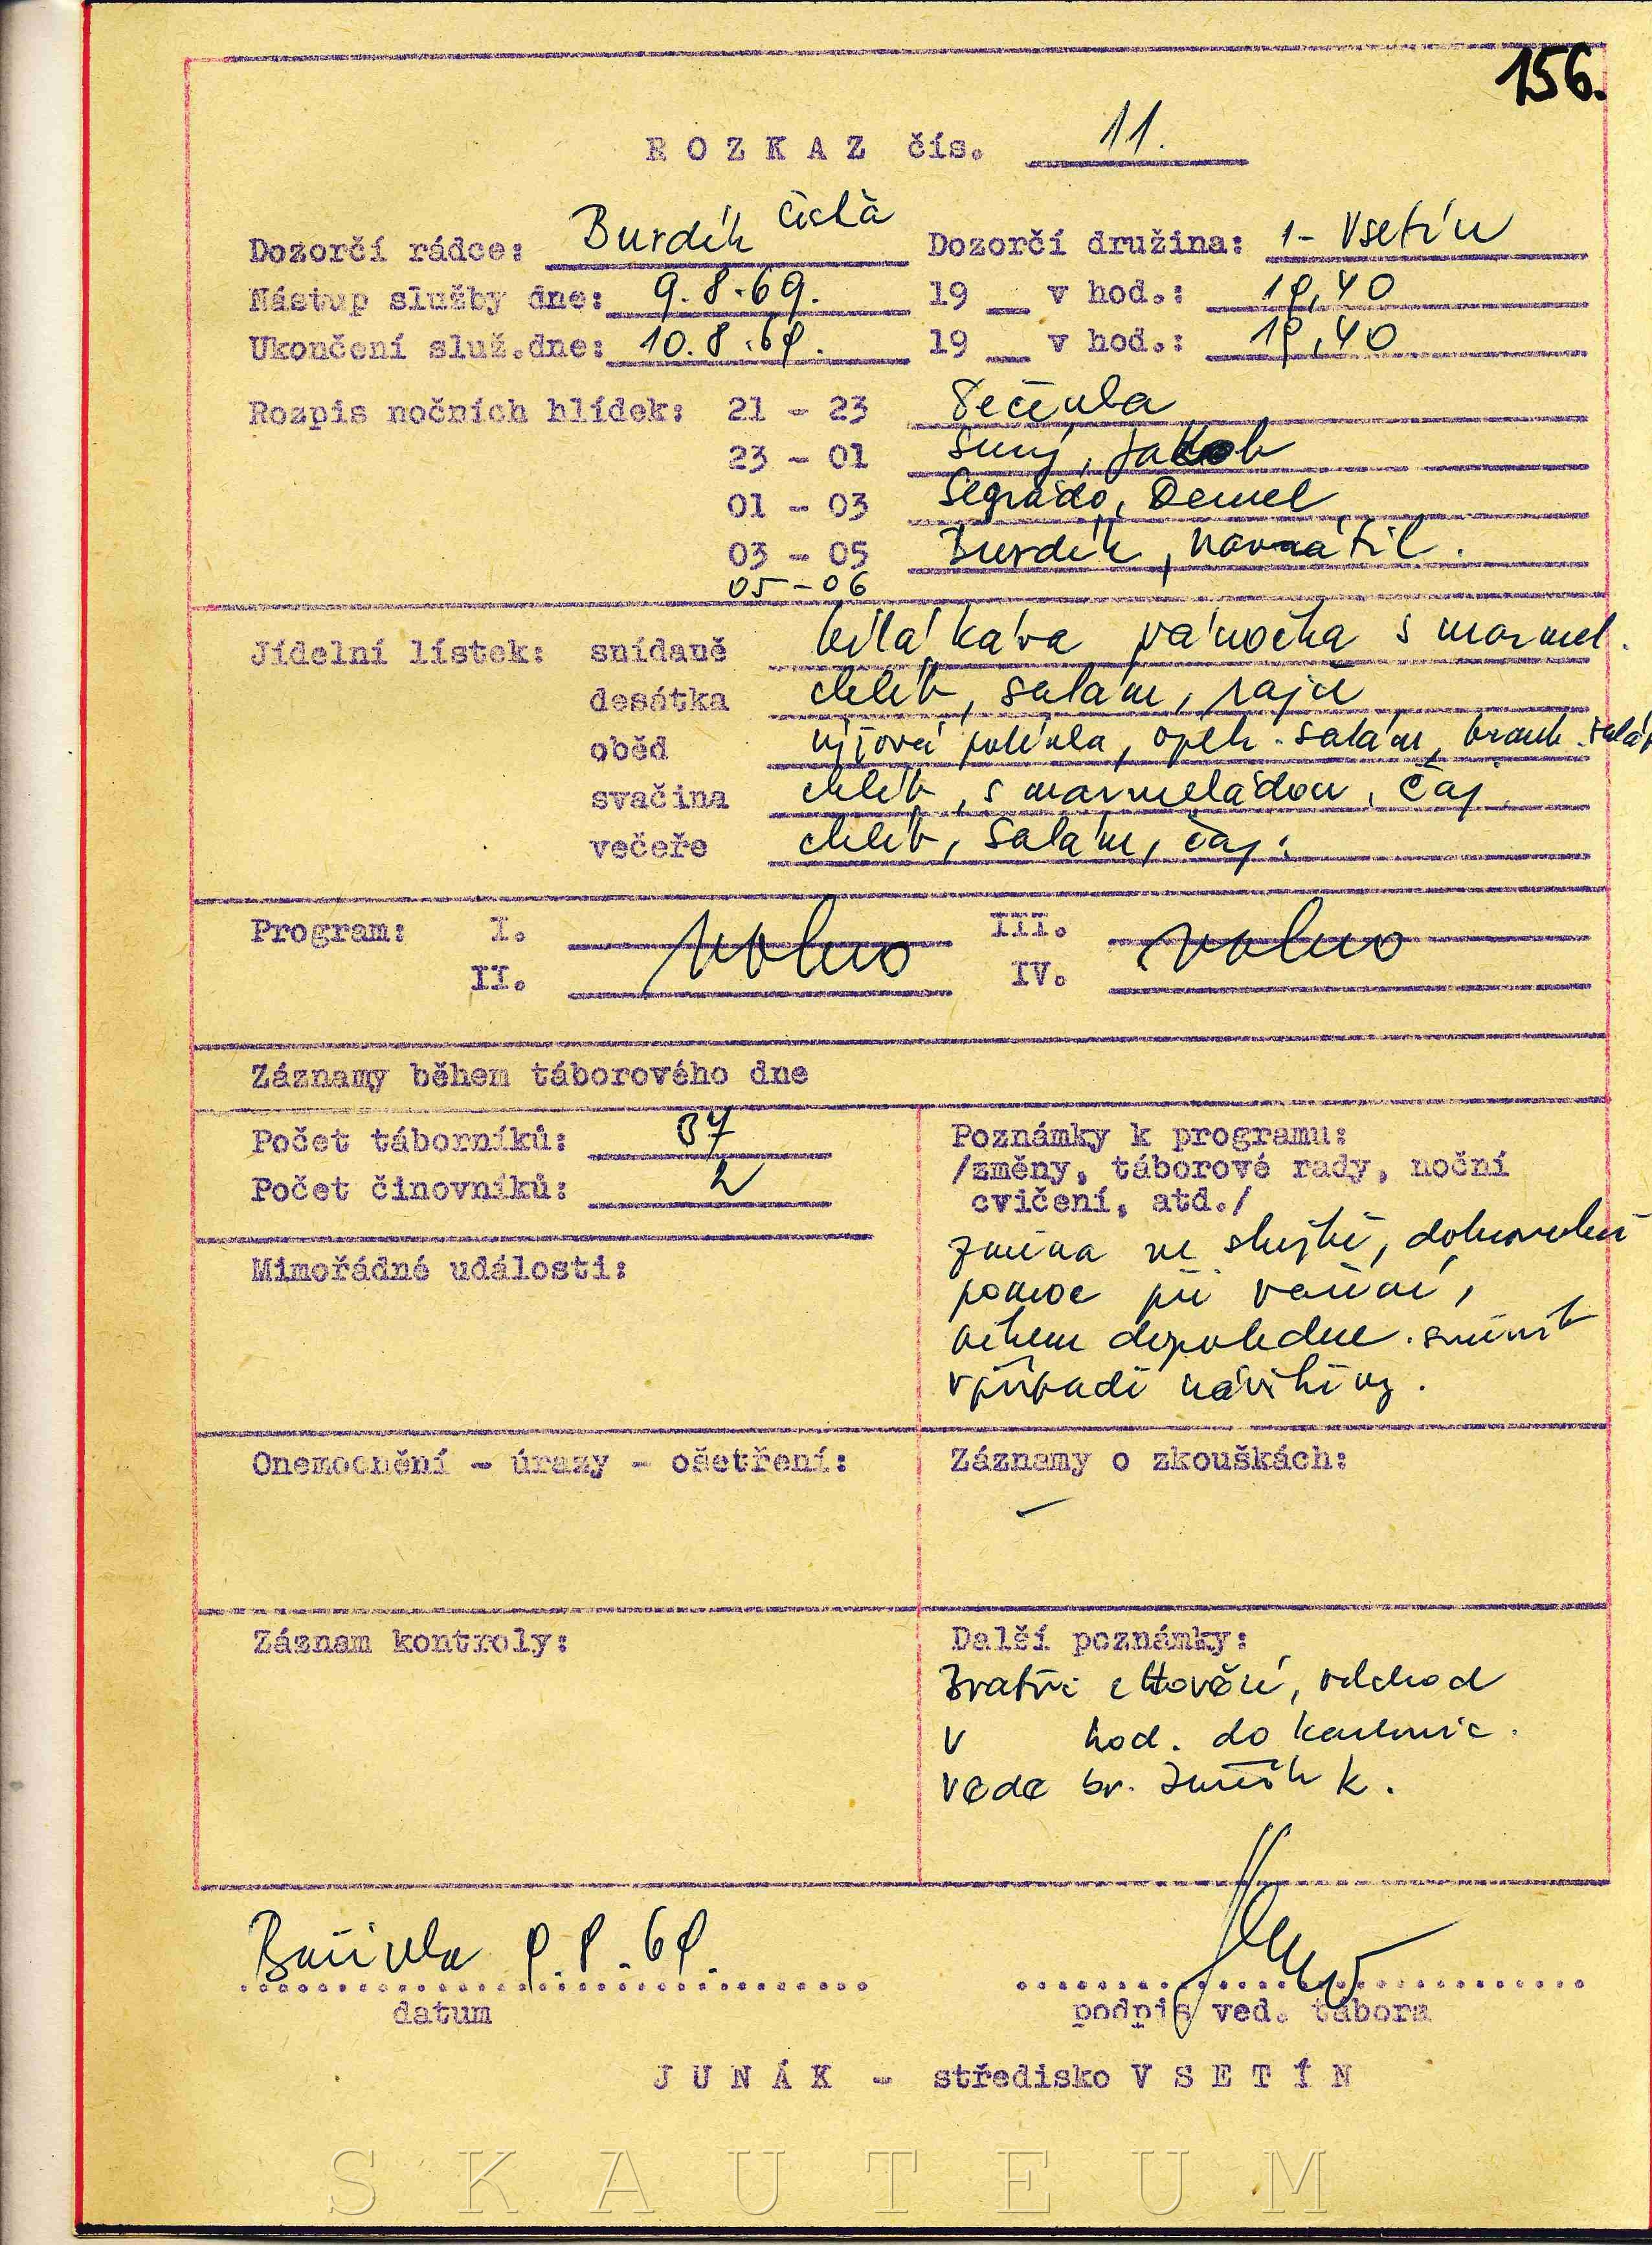 156.
ROZKAZ čís. 11.
Dozorčí rádce: Burdík Dozorčí družina: 1- Vsetín
Nástup služby dne: 9.8.69. 19 v hod.: 19,40
Ukončení služ.dne: 10.8.69. 19 v hod.: 19,40
Rozpis nočních hlídek: 21 - 23
23 - 01 Jakob
01 - 03 Demel
03 - 05 Burdík, Navrátil.
05-06
Jídelní lístek: snídaně bílá káva vánočka s marmel.
desátka chléb, salám, rajče
oběd polévka, salám, bramb. salát
svačina chléb, s marmeládou, čaj.
večeře chléb, salám, čaj.
Program: I. volno III. volno
II. IV.
Záznamy během táborového dne
Počet táborníků: 37
Počet činovníků: 2
Poznámky k programu:
/změny, táborové rady, noční
cvičení, atd./
změna ve službě, dobrovolná
pomoc při vaření,
během dopoledne
v případě návštěvy.
Mimořádné události:
Onemocnění - úrazy - ošetření:
Záznamy o zkouškách:
-
Záznam kontroly:
Další poznámky:
Bratři odchod
v hod. do Karlovic.
vede br. K.
9.8.69.
datum
podpis ved. tábora
JUNÁK - středisko VSETÍN
SKAUTEUM